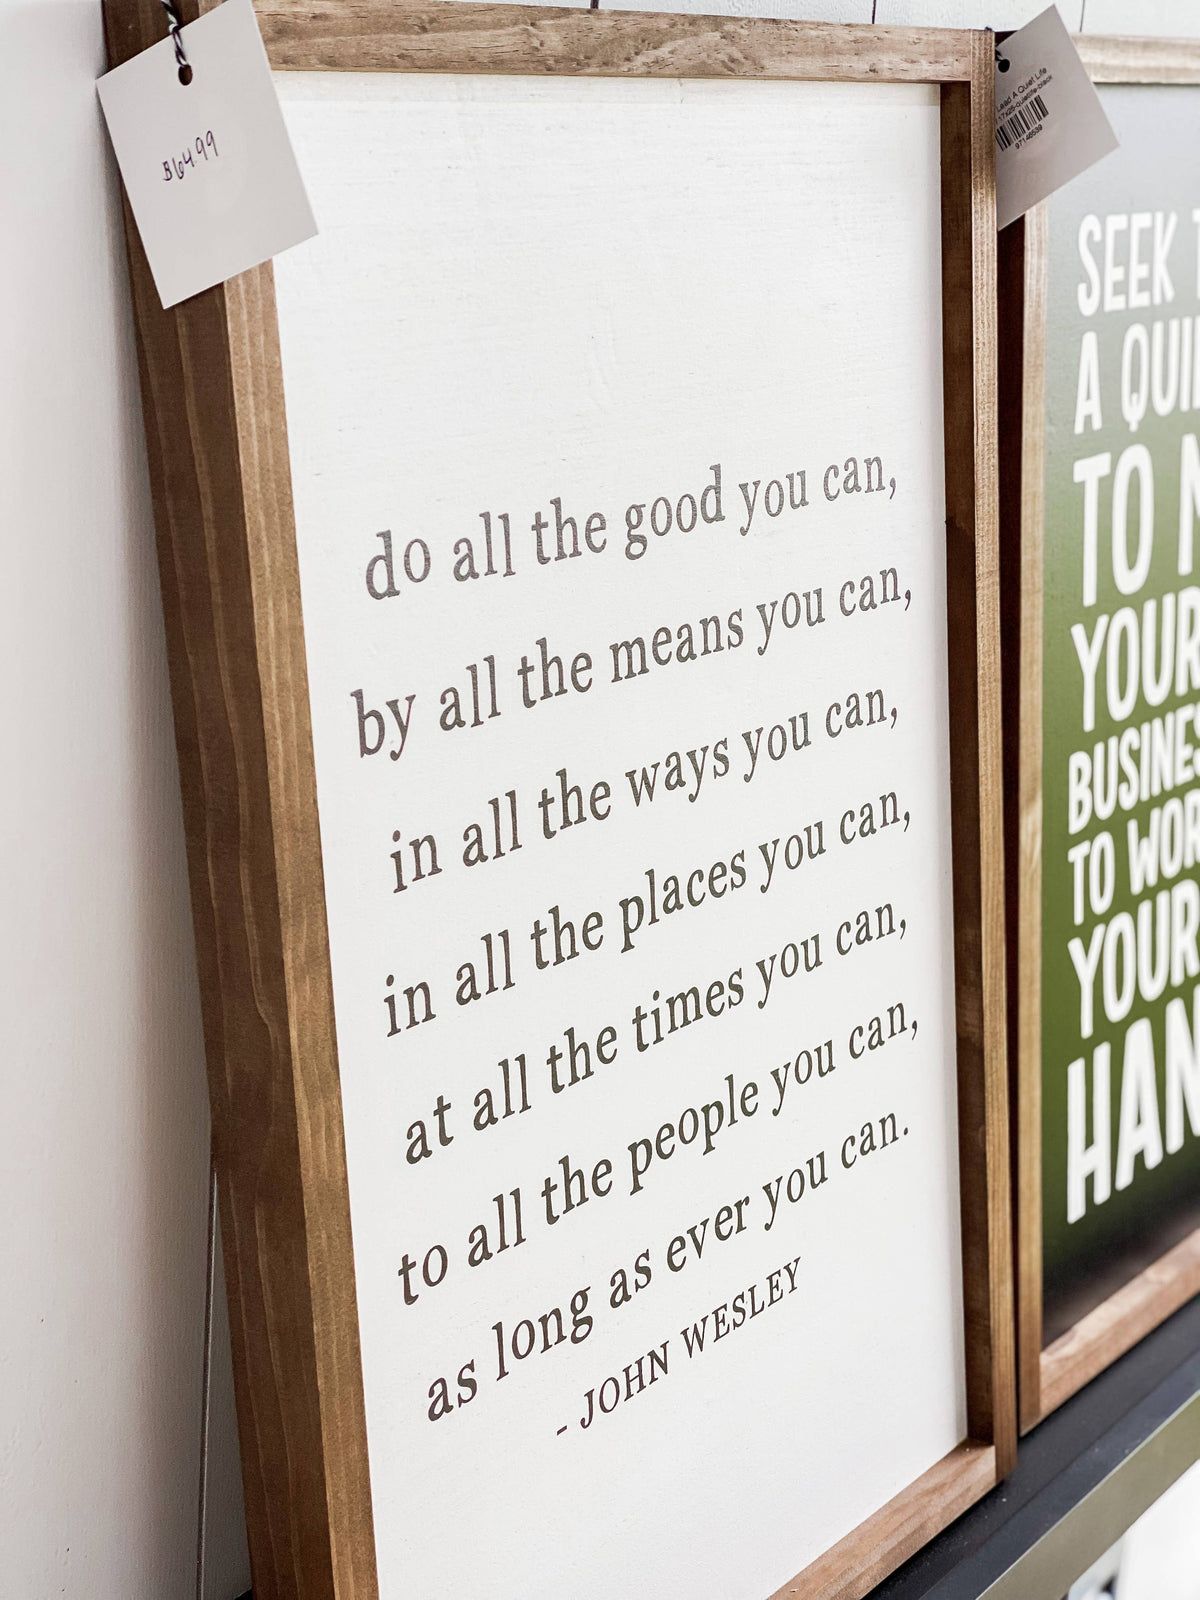 $64.99
Lead A Quiet Life
17x25-quietlife-black
do all the good you can,
by all the means you can,
in all the ways you can,
in all the places you can,
at all the times you can,
to all the people you can,
as long as ever you can.
- JOHN WESLEY
SEEK
A
TO
YOUR
TO
YOUR